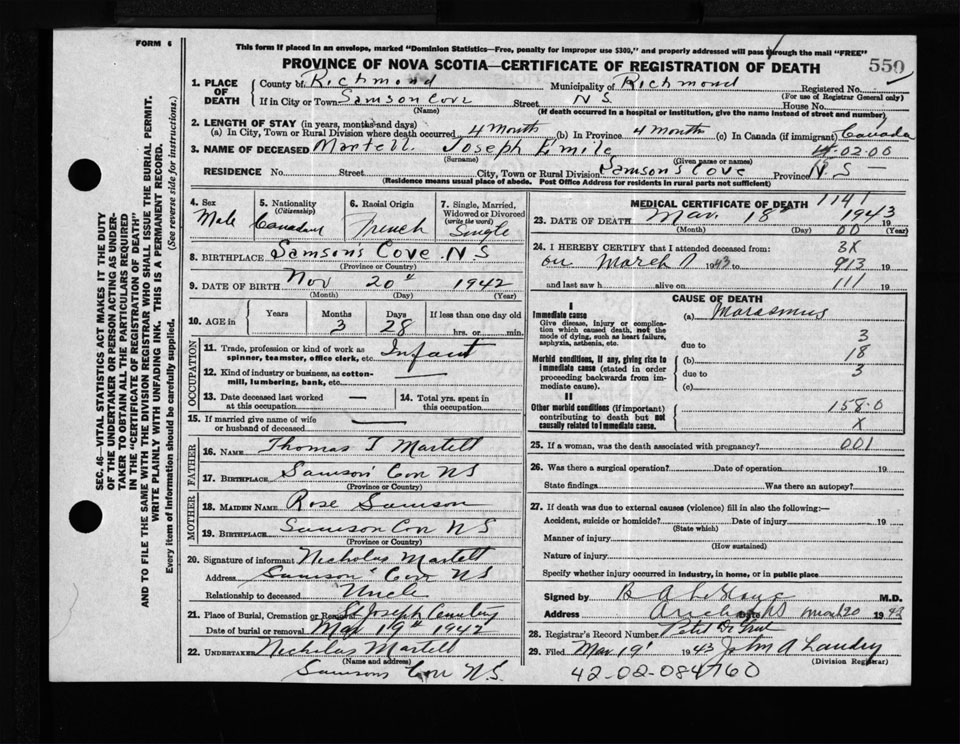 FORM 6
This form if placed in an envelope, marked "Dominion Statistics—Free, penalty for improper use $300," and properly addressed will pass through the mail "FREE"
PROVINCE OF NOVA SCOTIA—CERTIFICATE OF REGISTRATION OF DEATH
550
1. PLACE OF DEATH
County of Richmond Municipality of Richmond Registered No.
(For use of Registrar General only)
If in City or Town Samson Cove Street N S House No.
(Name) (If death occurred in a hospital or institution, give the name instead of street and number)
2. LENGTH OF STAY (in years, months and days)
(a) In City, Town or Rural Division where death occurred 4 Month (b) In Province 4 month (c) In Canada (if immigrant) Canada
3. NAME OF DECEASED Martell Joseph Emile 4.02.00
(Surname) (Given name or names)
RESIDENCE No. Street City, Town or Rural Division Samson's Cove Province N.S
(Residence means usual place of abode. Post Office Address for residents in rural parts not sufficient)
4. Sex Male
5. Nationality (Citizenship) Canadian
6. Racial Origin French
7. Single, Married, Widowed or Divorced (write the word) Single
8. BIRTHPLACE Samson's Cove N S
(Province or Country)
9. DATE OF BIRTH Nov 20th 1942
(Month) (Day) (Year)
10. AGE in Years Months 3 Days 28 If less than one day old hrs. or min.
OCCUPATION
11. Trade, profession or kind of work as spinner, teamster, office clerk, etc. Infant
12. Kind of industry or business, as cotton-mill, lumbering, bank, etc. —
13. Date deceased last worked at this occupation —
14. Total yrs. spent in this occupation
15. If married give name of wife or husband of deceased —
FATHER
16. NAME Thomas J Martell
17. BIRTHPLACE Samson' Cove NS
(Province or Country)
MOTHER
18. MAIDEN NAME Rose Samson
19. BIRTHPLACE Samson Cove NS
(Province or Country)
20. Signature of informant Nicholas Martell
Address Samson' Cove NS
Relationship to deceased Uncle
21. Place of Burial, Cremation or Removal St Joseph Cemetery
Date of burial or removal Mar 19th 1942
22. UNDERTAKER Nicholas Martell
(Name and address)
Samsons Cove N.S.
MEDICAL CERTIFICATE OF DEATH 1141
23. DATE OF DEATH Mar. 18th 1943 19
(Month) (Day) 00 (Year)
24. I HEREBY CERTIFY that I attended deceased from: 3X
on March 7 1943 to 913 19
and last saw h alive on 111 19
CAUSE OF DEATH
I
Immediate cause
Give disease, injury or complication which caused death, not the mode of dying, such as heart failure, asphyxia, asthenia, etc.
(a) Marasmus
3
due to
Morbid conditions, if any, giving rise to immediate cause (stated in order proceeding backwards from immediate cause).
(b) 18
due to 3
(c)
II
Other morbid conditions (if important) contributing to death but not causally related to immediate cause.
158.0
X
25. If a woman, was the death associated with pregnancy? 001
26. Was there a surgical operation? Date of operation 19
State findings Was there an autopsy?
27. If death was due to external causes (violence) fill in also the following:—
Accident, suicide or homicide? Date of injury 19
(State which)
Manner of injury
(How sustained)
Nature of injury
Specify whether injury occurred in industry, in home, or in public place
Signed by M.D.
Address Arichat NS Date Mar 20 1943
28. Registrar's Record Number
29. Filed Mar. 19' 1943 John A Landry
(Division Registrar)
42-02-084760
SEC. 46—VITAL STATISTICS ACT MAKES IT THE DUTY
OF THE UNDERTAKER OR PERSON ACTING AS UNDER-
TAKER TO OBTAIN ALL THE PARTICULARS REQUIRED
IN THE "CERTIFICATE OF REGISTRATION OF DEATH"
AND TO FILE THE SAME WITH THE DIVISION REGISTRAR WHO SHALL ISSUE THE BURIAL PERMIT.
WRITE PLAINLY WITH UNFADING INK. THIS IS A PERMANENT RECORD.
Every item of information should be carefully supplied. (See reverse side for instructions.)